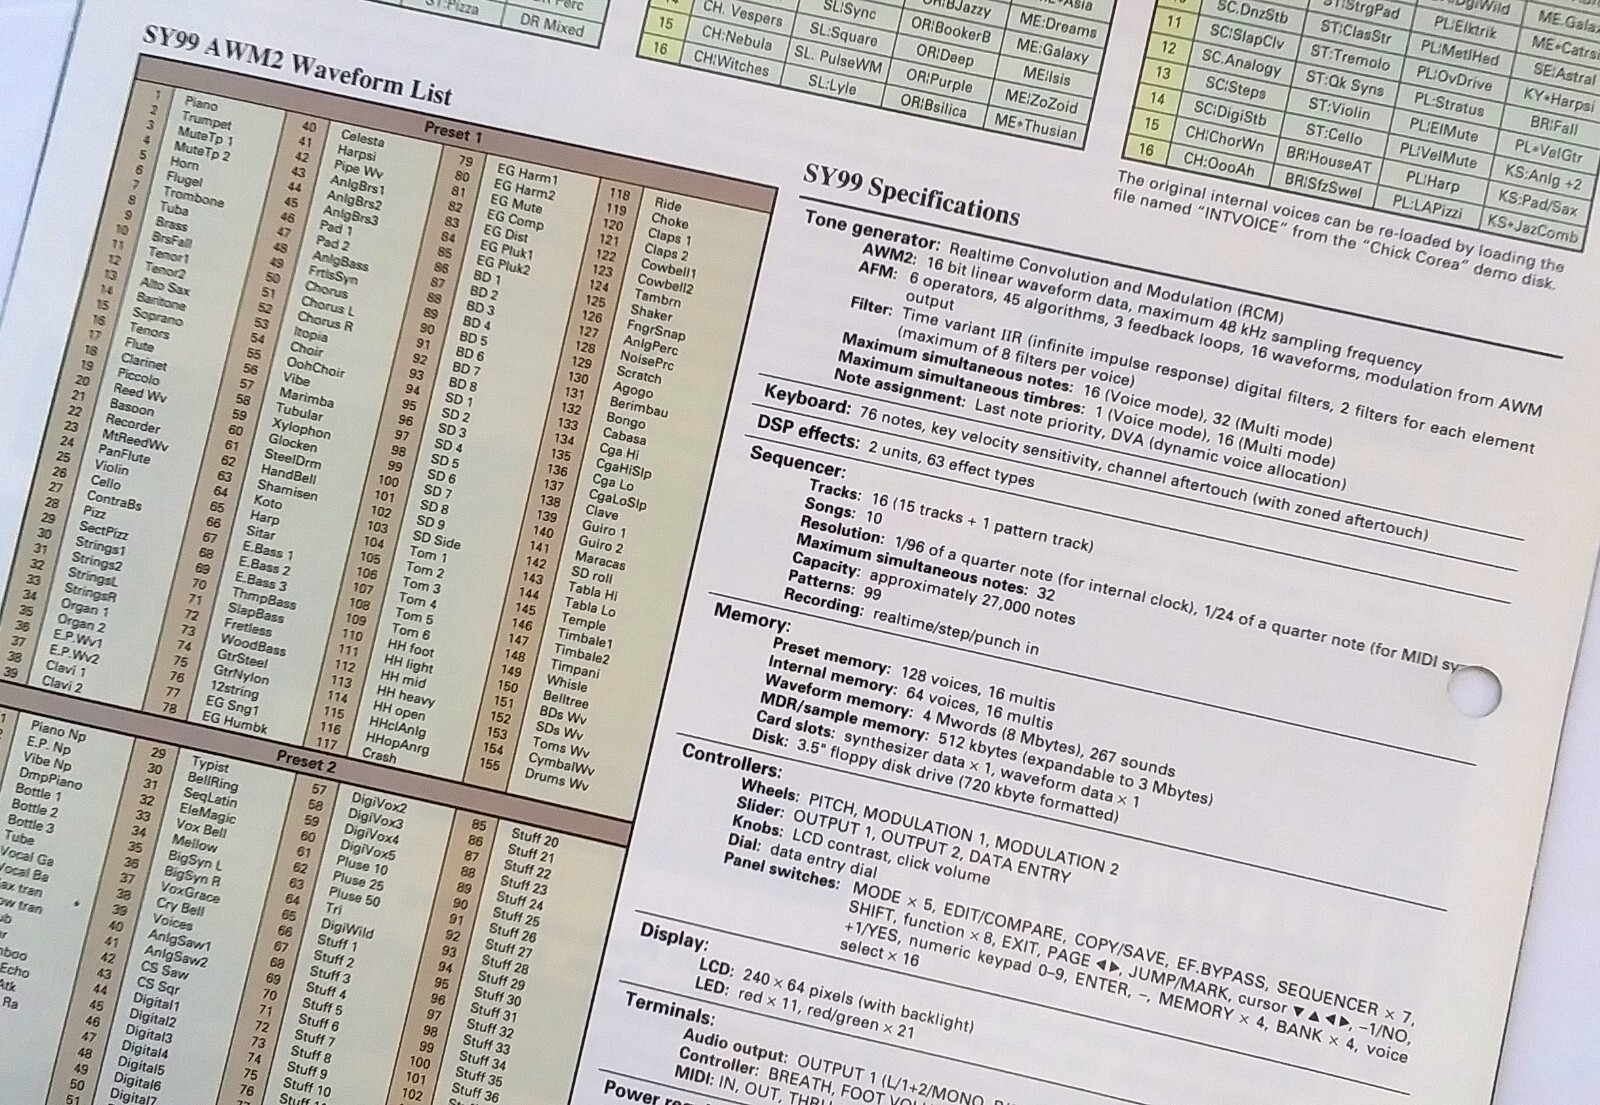 ST:Pizza DR Mixed
15 CH. Vespers SL:Sync OR:BJazzy ME:Dreams
16 CH:Nebula SL:Square OR:BookerB ME:Galaxy
CH:Witches SL. PulseWM OR:Deep ME:Isis
SL:Lyle OR:Purple ME:ZoZoid
OR:Bsilica ME•Thusian
11 SC.DnzStb ST:StrgPad PL:Elktrik ME:Galax
12 SC:SlapClv ST:ClasStr PL:MetlHed ME•Catrs
13 SC.Analogy ST:Tremolo PL:OvDrive SE:Astral
14 SC:Steps ST:Qk Syns PL:Stratus KY•Harpsi
15 SC:DigiStb ST:Violin PL:ElMute BR:Fall
16 CH:ChorWn ST:Cello PL:VelMute PL•VelGtr
CH:OooAh BR:HouseAT PL:Harp KS:Anlg +2
BR:SfzSwel PL:LAPizzi KS:Pad/Sax
KS•JazComb
The original internal voices can be re-loaded by loading the
file named "INTVOICE" from the "Chick Corea" demo disk.
SY99 AWM2 Waveform List
Preset 1
1 Piano
2 Trumpet
3 MuteTp 1
4 MuteTp 2
5 Horn
6 Flugel
7 Trombone
8 Tuba
9 Brass
10 BrsFall
11 Tenor1
12 Tenor2
13 Alto Sax
14 Baritone
15 Soprano
16 Tenors
17 Flute
18 Clarinet
19 Piccolo
20 Reed Wv
21 Basoon
22 Recorder
23 MtReedWv
24 PanFlute
25 Violin
26 Cello
27 ContraBs
28 Pizz
29 SectPizz
30 Strings1
31 Strings2
32 StringsL
33 StringsR
34 Organ 1
35 Organ 2
36 E.P.Wv1
37 E.P.Wv2
38 Clavi 1
39 Clavi 2
40 Celesta
41 Harpsi
42 Pipe Wv
43 AnlgBrs1
44 AnlgBrs2
45 AnlgBrs3
46 Pad 1
47 Pad 2
48 AnlgBass
49 FrtlsSyn
50 Chorus
51 Chorus L
52 Chorus R
53 Itopia
54 Choir
55 OohChoir
56 Vibe
57 Marimba
58 Tubular
59 Xylophon
60 Glocken
61 SteelDrm
62 HandBell
63 Shamisen
64 Koto
65 Harp
66 Sitar
67 E.Bass 1
68 E.Bass 2
69 E.Bass 3
70 ThmpBass
71 SlapBass
72 Fretless
73 WoodBass
74 GtrSteel
75 GtrNylon
76 12string
77 EG Sng1
78 EG Humbk
79 EG Harm1
80 EG Harm2
81 EG Mute
82 EG Comp
83 EG Dist
84 EG Pluk1
85 EG Pluk2
86 BD 1
87 BD 2
88 BD 3
89 BD 4
90 BD 5
91 BD 6
92 BD 7
93 BD 8
94 SD 1
95 SD 2
96 SD 3
97 SD 4
98 SD 5
99 SD 6
100 SD 7
101 SD 8
102 SD 9
103 SD Side
104 Tom 1
105 Tom 2
106 Tom 3
107 Tom 4
108 Tom 5
109 Tom 6
110 HH foot
111 HH light
112 HH mid
113 HH heavy
114 HH open
115 HHclAnlg
116 HHopAnrg
117 Crash
118 Ride
119 Choke
120 Claps 1
121 Claps 2
122 Cowbell1
123 Cowbell2
124 Tambrn
125 Shaker
126 FngrSnap
127 AnlgPerc
128 NoisePrc
129 Scratch
130 Agogo
131 Berimbau
132 Bongo
133 Cabasa
134 Cga Hi
135 CgaHiSlp
136 Cga Lo
137 CgaLoSlp
138 Clave
139 Guiro 1
140 Guiro 2
141 Maracas
142 SD roll
143 Tabla Hi
144 Tabla Lo
145 Temple
146 Timbale1
147 Timbale2
148 Timpani
149 Whisle
150 Belltree
151 BDs Wv
152 SDs Wv
153 Toms Wv
154 CymbalWv
155 Drums Wv
Preset 2
1 Piano Np
E.P. Np
Vibe Np
DmpPiano
Bottle 1
Bottle 2
Bottle 3
Tube
Vocal Ga
Vocal Ba
ax tran
ow tran
Echo
Atk
Ra
29 Typist
30 BellRing
31 SeqLatin
32 EleMagic
33 Vox Bell
34 Mellow
35 BigSyn L
36 BigSyn R
37 VoxGrace
38 Cry Bell
39 Voices
40 AnlgSaw1
41 AnlgSaw2
42 CS Saw
43 CS Sqr
44 Digital1
45 Digital2
46 Digital3
47 Digital4
48 Digital5
49 Digital6
50 Digital7
51
57 DigiVox2
58 DigiVox3
59 DigiVox4
60 DigiVox5
61 Pluse 10
62 Pluse 25
63 Pluse 50
64 Tri
65 DigiWild
66 Stuff 1
67 Stuff 2
68 Stuff 3
69 Stuff 4
70 Stuff 5
71 Stuff 6
72 Stuff 7
73 Stuff 8
74 Stuff 9
75 Stuff 10
76 Stuff
85 Stuff 20
86 Stuff 21
87 Stuff 22
88 Stuff 23
89 Stuff 24
90 Stuff 25
91 Stuff 26
92 Stuff 27
93 Stuff 28
94 Stuff 29
95 Stuff 30
96 Stuff 31
97 Stuff 32
98 Stuff 33
99 Stuff 34
100 Stuff 35
101 Stuff 36
102
SY99 Specifications
Tone generator: Realtime Convolution and Modulation (RCM)
AWM2: 16 bit linear waveform data, maximum 48 kHz sampling frequency
AFM: 6 operators, 45 algorithms, 3 feedback loops, 16 waveforms, modulation from AWM
output
Filter: Time variant IIR (infinite impulse response) digital filters, 2 filters for each element
(maximum of 8 filters per voice)
Maximum simultaneous notes: 16 (Voice mode), 32 (Multi mode)
Maximum simultaneous timbres: 1 (Voice mode), 16 (Multi mode)
Note assignment: Last note priority, DVA (dynamic voice allocation)
Keyboard: 76 notes, key velocity sensitivity, channel aftertouch (with zoned aftertouch)
DSP effects: 2 units, 63 effect types
Sequencer:
Tracks: 16 (15 tracks + 1 pattern track)
Songs: 10
Resolution: 1/96 of a quarter note (for internal clock), 1/24 of a quarter note (for MIDI sy
Maximum simultaneous notes: 32
Capacity: approximately 27,000 notes
Patterns: 99
Recording: realtime/step/punch in
Memory:
Preset memory: 128 voices, 16 multis
Internal memory: 64 voices, 16 multis
Waveform memory: 4 Mwords (8 Mbytes), 267 sounds
MDR/sample memory: 512 kbytes (expandable to 3 Mbytes)
Card slots: synthesizer data × 1, waveform data × 1
Disk: 3.5" floppy disk drive (720 kbyte formatted)
Controllers:
Wheels: PITCH, MODULATION 1, MODULATION 2
Slider: OUTPUT 1, OUTPUT 2, DATA ENTRY
Knobs: LCD contrast, click volume
Dial: data entry dial
Panel switches: MODE × 5, EDIT/COMPARE, COPY/SAVE, EF.BYPASS, SEQUENCER × 7,
SHIFT, function × 8, EXIT, PAGE ◀▶, JUMP/MARK, cursor ▼▲◀▶, –1/NO,
+1/YES, numeric keypad 0–9, ENTER, –, MEMORY × 4, BANK × 4, voice
select × 16
Display:
LCD: 240 × 64 pixels (with backlight)
LED: red × 11, red/green × 21
Terminals:
Audio output: OUTPUT 1 (L/1+2/MONO,
Controller: BREATH, FOOT
MIDI: IN, OUT, THRU
Power